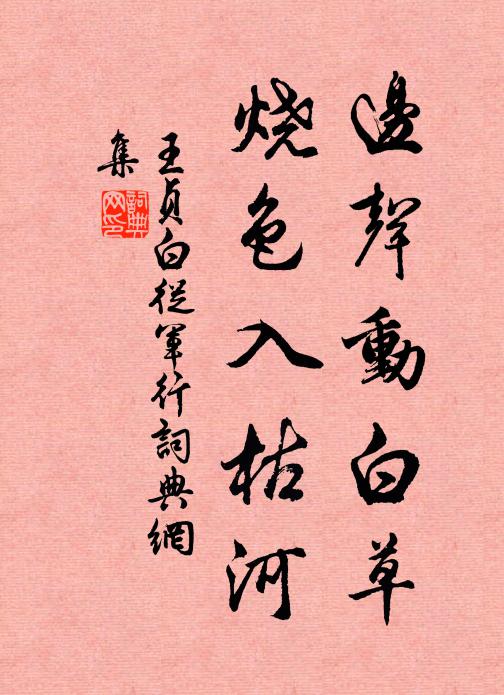 邊聲動白草
烧色入枯河
王貞白從軍行詞典網
集
詞典
网印